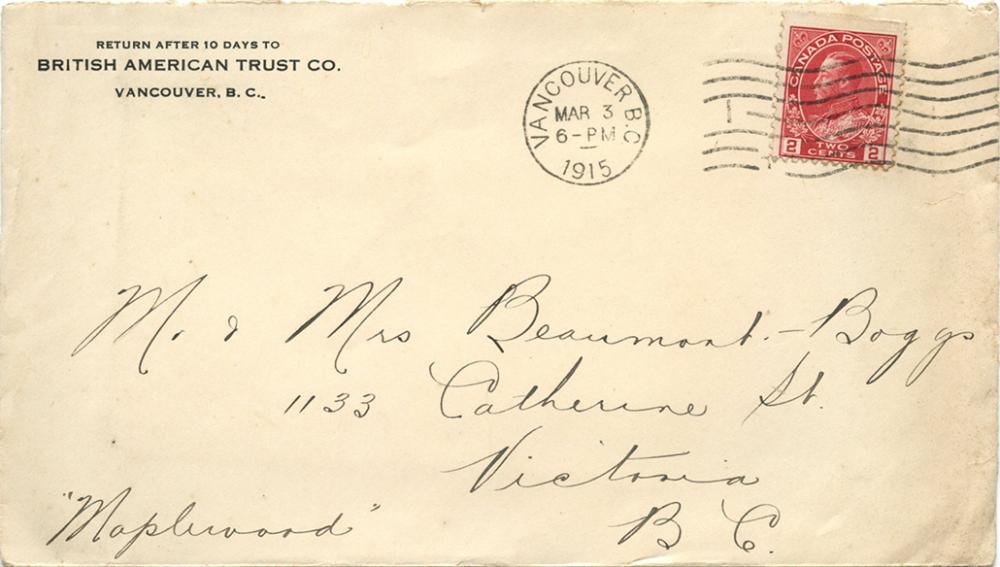 RETURN AFTER 10 DAYS TO
BRITISH AMERICAN TRUST CO.
VANCOUVER, B. C.
VANCOUVER B.C
MAR 3
6-PM
1915
CANADA POSTAGE
2 TWO CENTS 2
M. & Mrs Beaumont-Boggs
1133 Catherine St.
Victoria
B C.
"Maplewood"